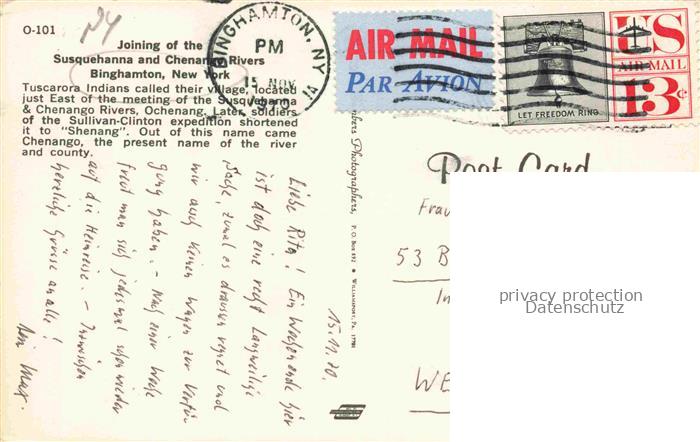 O-101
Joining of the
Susquehanna and Chenango Rivers
Binghamton, New York
Tuscarora Indians called their village, located
just East of the meeting of the Susquehanna
& Chenango Rivers, Ochenang. Later, soldiers
of the Sullivan-Clinton expedition shortened
it to "Shenang". Out of this name came
Chenango, the present name of the river
and county.
BINGHAMTON, NY
PM
15 NOV
AIR MAIL
PAR AVION
LET FREEDOM RING
US
AIR MAIL
13¢
Post Card
Photographers, P.O. BOX 892 • WILLIAMSPORT, PA. 17701
15.11.70.
Liebe Rita! Ein Wochenende hier
ist doch eine recht langweilige
Sache, zumal es draussen regnet und
wir auch keinen Wagen zur Verfü-
gung haben. – Nach einer Woche
freut man sich jedesmal schon wieder
auf die Heimreise. – Inzwischen
herzliche Grüsse an alle!
Dein Max.
Frau
53 B
In
WE
privacy protection
Datenschutz